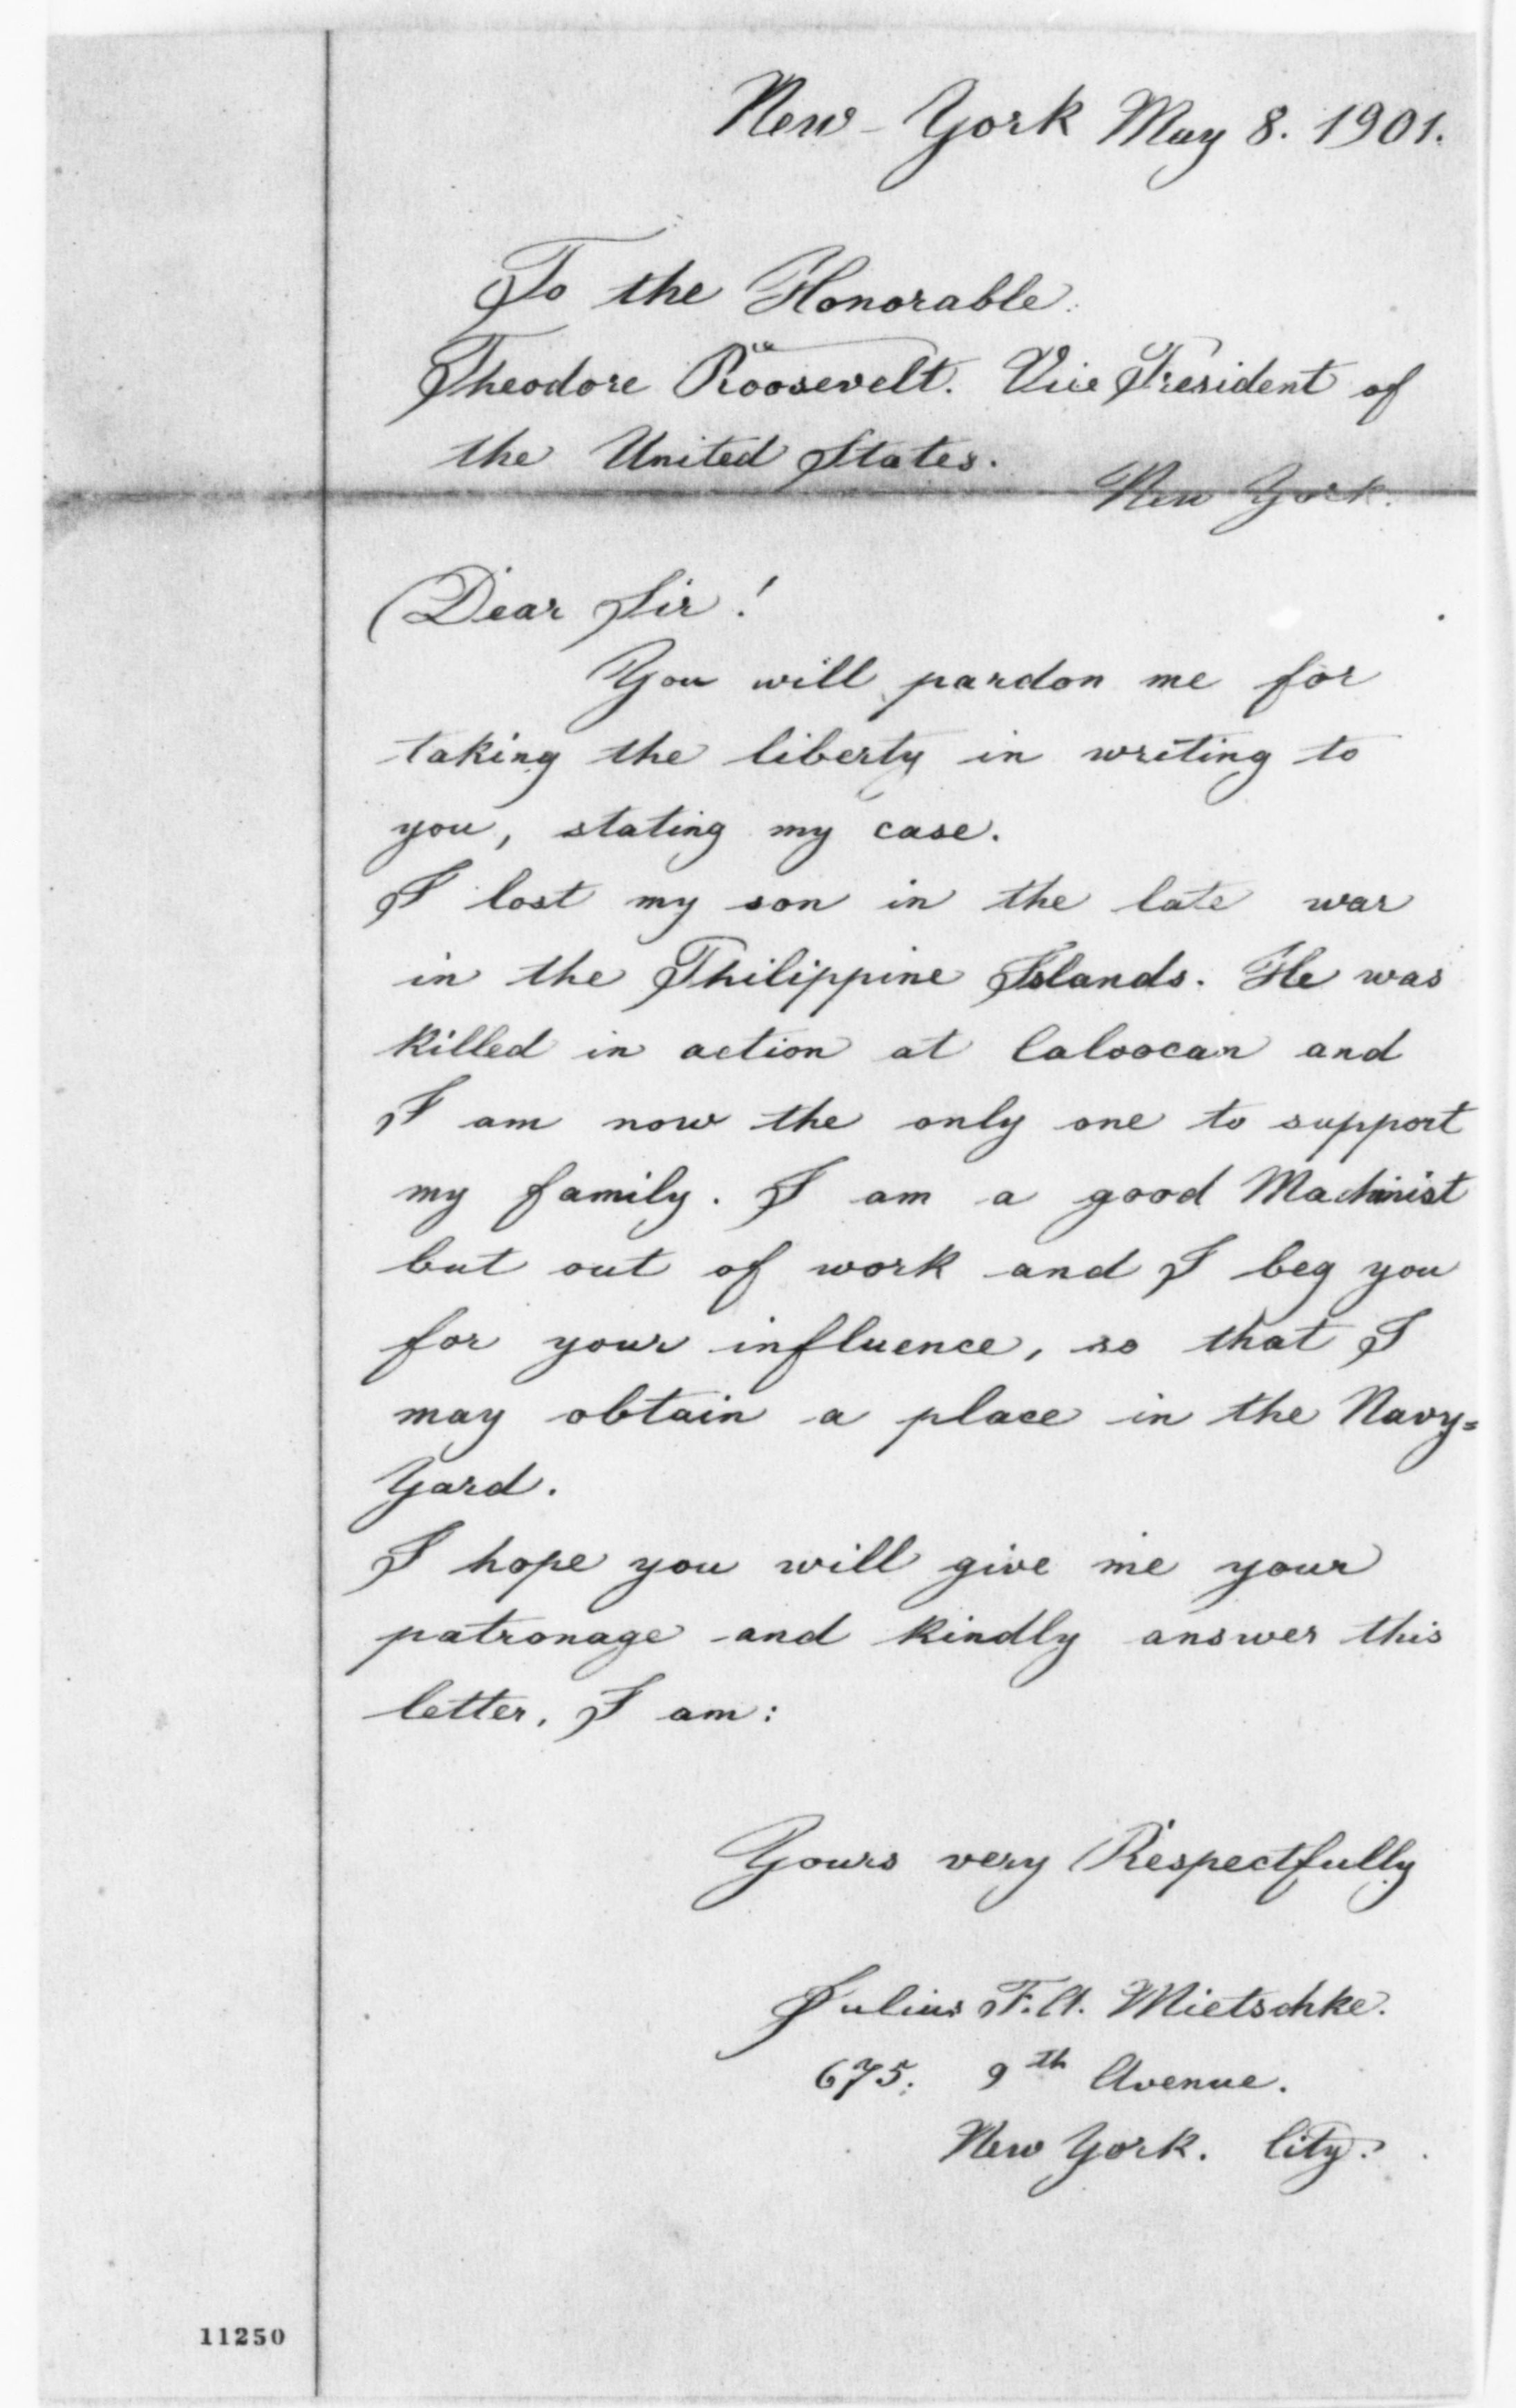 New-York May 8. 1901.
To the Honorable
Theodore Roosevelt. Vice President of
the United States.
New York.
Dear Sir!
You will pardon me for
taking the liberty in writing to
you, stating my case.
I lost my son in the late war
in the Philippine Islands. He was
killed in action at Caloocan and
I am now the only one to support
my family. I am a good Machinist
but out of work and I beg you
for your influence, so that I
may obtain a place in the Navy=
Yard.
I hope you will give me your
patronage and kindly answer this
letter. I am:
Yours very Respectfully
Julius F. A. Mietschke.
675. 9th Avenue.
New York. City.
11250